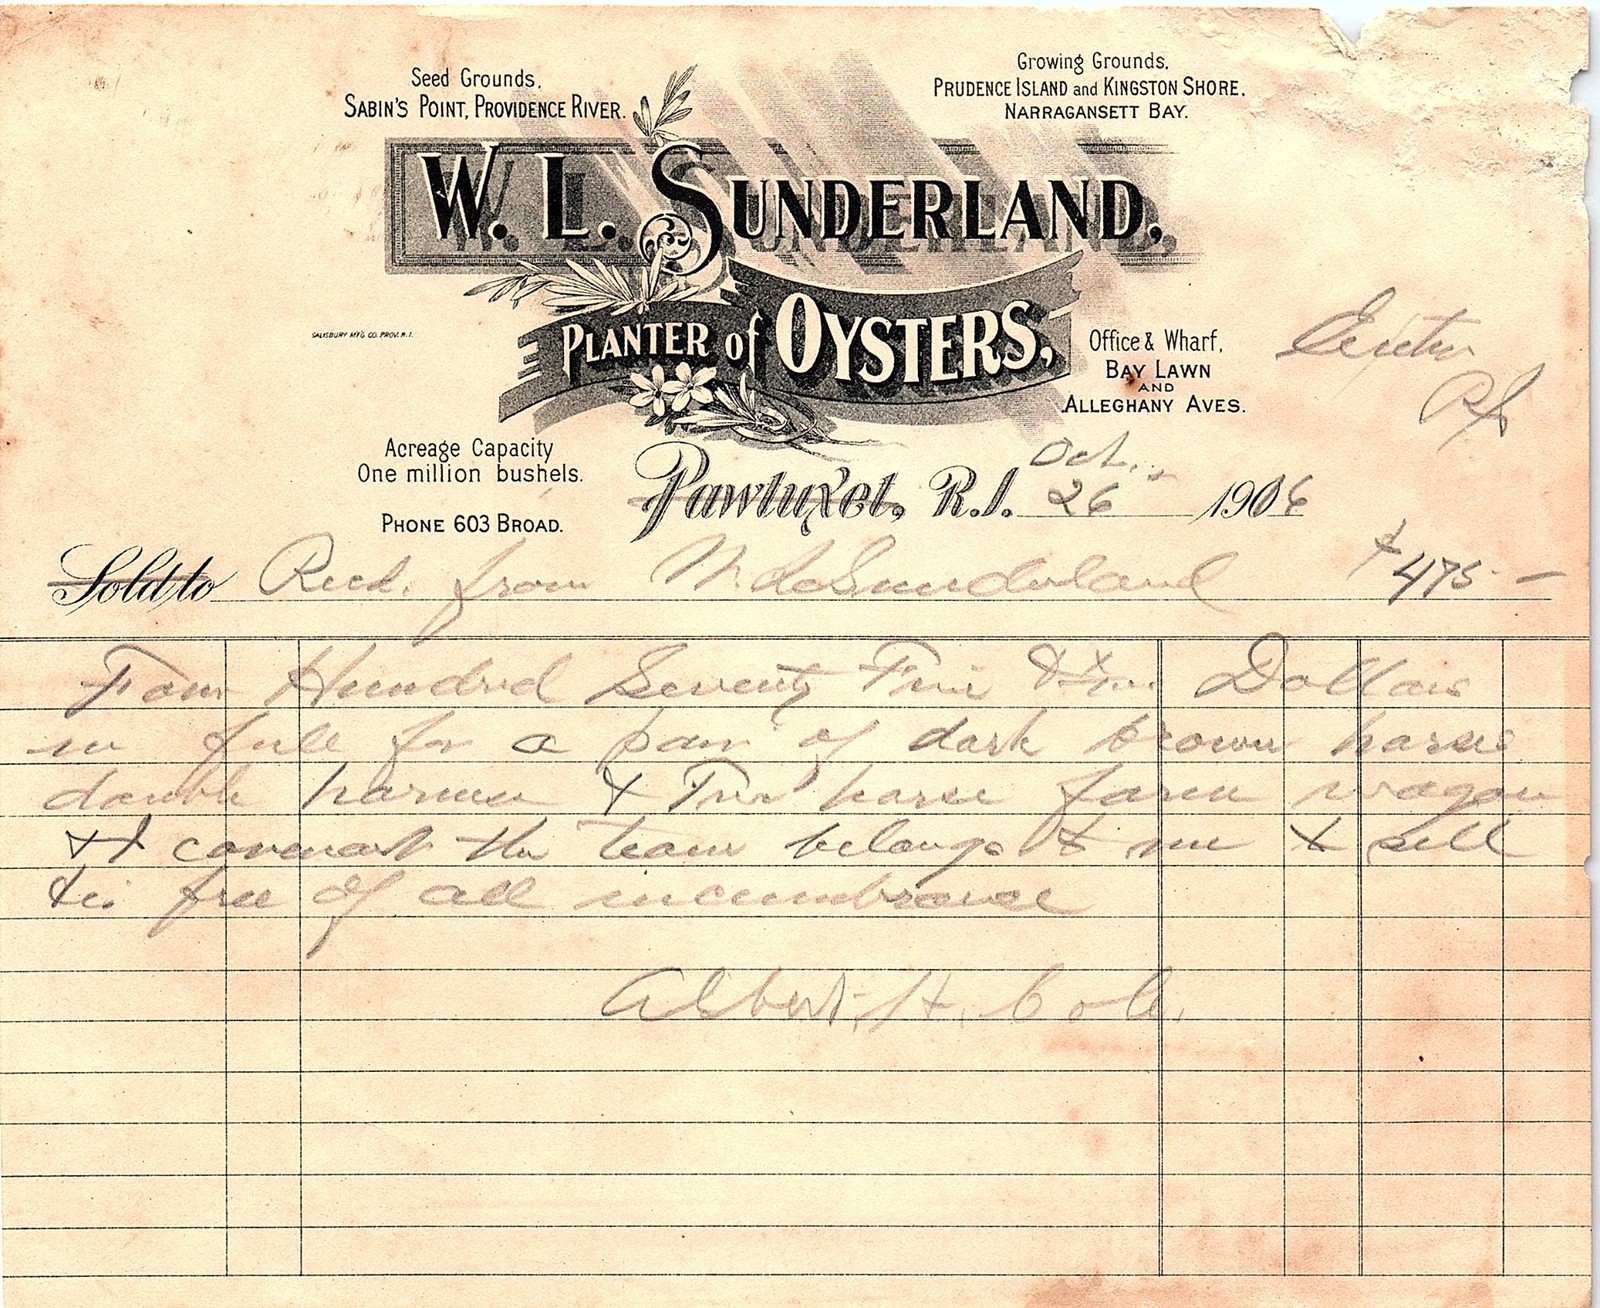 Seed Grounds,
SABIN'S POINT, PROVIDENCE RIVER.
Growing Grounds,
PRUDENCE ISLAND and KINGSTON SHORE,
NARRAGANSETT BAY.
W. L. SUNDERLAND,
PLANTER of OYSTERS,
SALISBURY M'F'G CO. PROV. R.I.
Office & Wharf,
BAY LAWN
AND
ALLEGHANY AVES.
Exeter
RI
Acreage Capacity
One million bushels.
PHONE 603 BROAD.
Pawtuxet, R.I. Oct. 26 1906
Sold to Recd. from W. L. Sunderland $475.-
Four Hundred Seventy Five Dollars
in full for a pair of dark brown horses
double harness & Two horse farm wagon
& I covenant the team belongs to me & sell
free of all incumbrance
Albert. H. Cole.